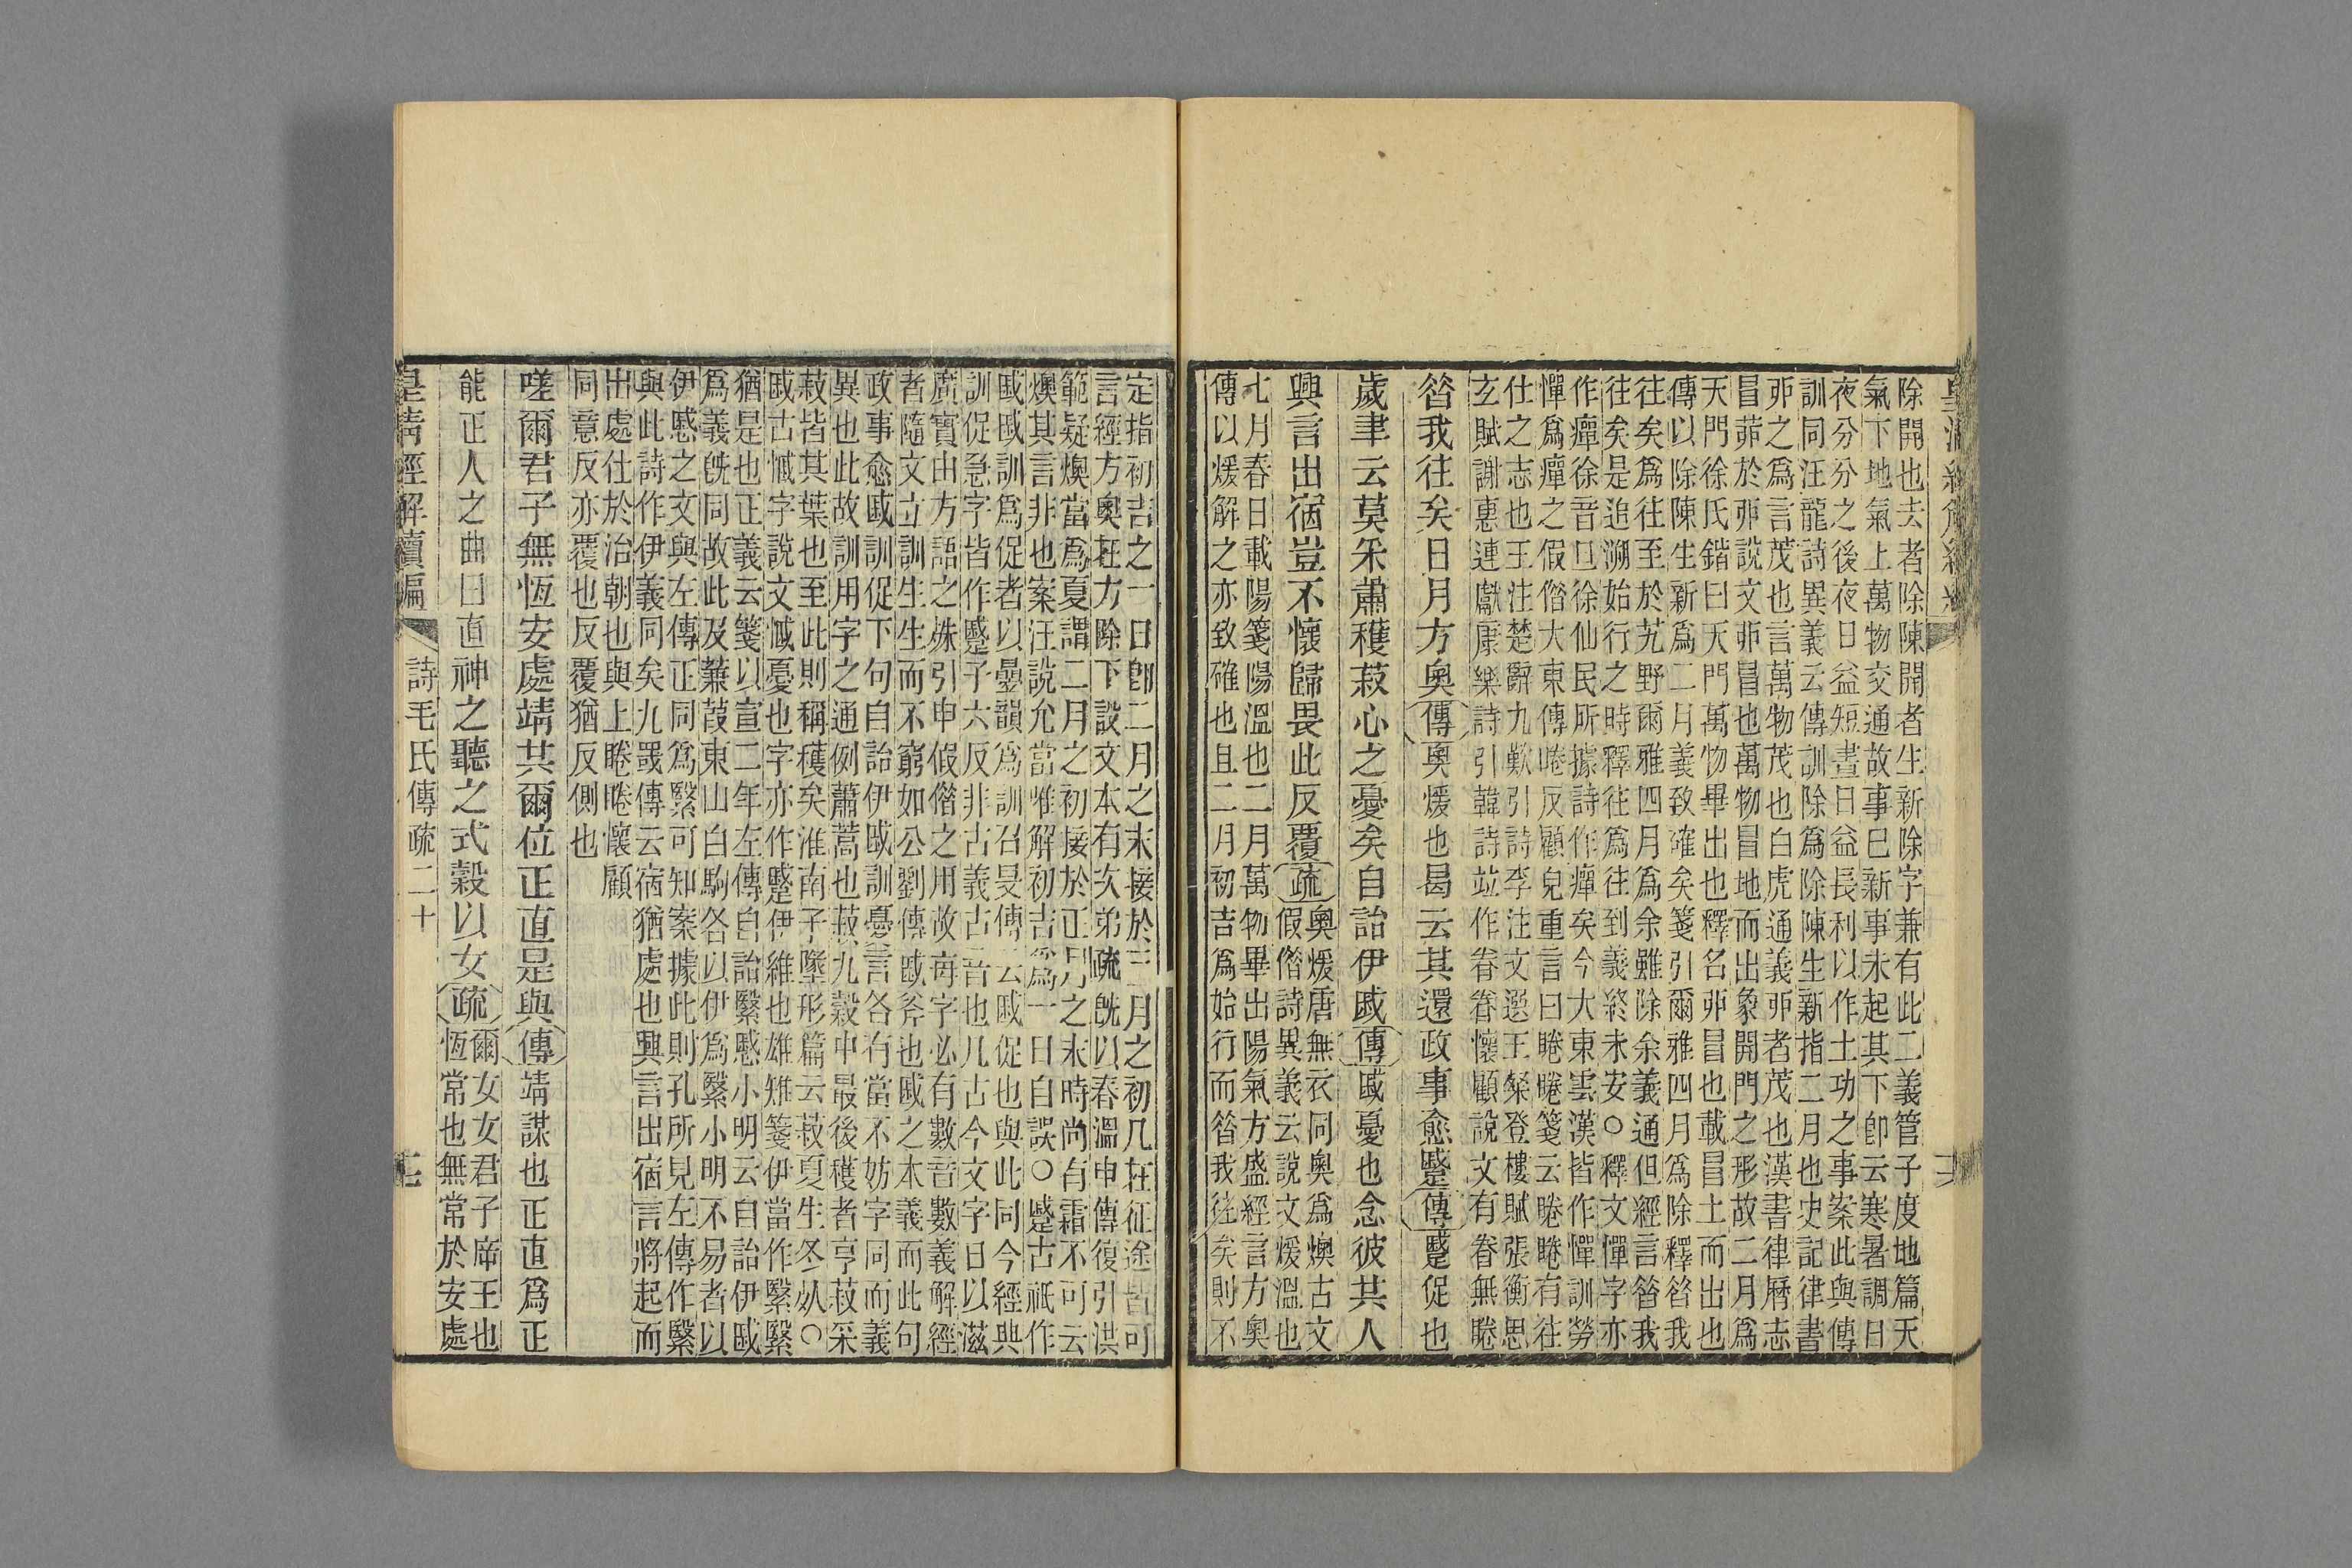 除開也去者除陳開者生新除字兼有此二義管子度地篇天
氣下地氣上萬物交通故事巳新事未起其下卽云寒暑調日
夜分分之後夜日益短晝日益長利以作土功之事案此與傳
訓同汪龍詩異義云傳訓除爲除陳生新指二月也史記律書
丣之爲言茂也言萬物茂也白虎通義丣者茂也漢書律厤志
冒茆於丣說文丣冒也萬物冒地而出象開門之形故二月爲
天門徐氏鍇曰天門萬物畢出也釋名丣冒也載冒土而出也
傳以除陳生新爲二月義致確矣箋引爾雅四月爲除釋昝我
往矣爲往至於艽野爾雅四月爲余雖除余義通但經言昝我
往矣是追溯始行之時釋往爲往到義終未安○釋文憚字亦
作癉徐音旦徐仙民所據詩作癉矣今大東雲漢皆作憚訓勞
憚爲癉之假偺大東傳睠反顧皃重言曰睠睠箋云睠睠有往
仕之志也王注楚辭九歎引詩李注文選王粲登樓賦張衡思
玄賦謝惠連獻康樂詩引韓詩竝作眷眷懷顧說文有眷無睠
昝我往矣日月方奧傳奧煖也曷云其還政事愈蹙傳蹙促也
歲聿云莫采蕭穫菽心之憂矣自詒伊戚傳戚憂也念彼共人
興言出宿豈不懷歸畏此反覆疏奧煖唐無衣同奧爲燠古文
假偺詩異義云說文煖溫也
七月春日載陽箋陽溫也二月萬物畢出陽氣方盛經言方奧
傳以煖解之亦致確也且二月初吉爲始行而昝我往矣則不
定指初吉之一日卽二月之末接於三月之初凡在征途皆可
言經方奧在方除下設文本有次弟疏旣以春溫申傳復引洪
範疑燠當爲夏謂二月之初接於正月之末時尚有霜不可云
燠其言非也案汪說允當唯解初吉爲一日自誤○蹙古祇作
戚戚訓爲促者以曡韻爲訓召旻傳云戚促也與此同今經典
訓促急字皆作蹙子六反非古義古音也凡古今文字日以滋
廣實由方語之殊引申假偺之用故每字必有數音數義解經
者隨文立訓生生而不窮如公劉傳戚斧也戚之本義而此句
政事愈戚訓促下句自詒伊戚訓憂言各有當不妨字同而義
異也此故訓用字之通例蕭蒿也菽九穀中最後穫者亨菽采
菽皆其葉也至此則稱穫矣淮南子墬形篇云菽夏生冬死○
戚古慽字說文慽憂也字亦作蹙伊維也雄雉箋伊當作繄繄
猶是也正義云箋以宣二年左傳自詒繄慼小明云自詒伊戚
爲義旣同故此及蒹葭東山白駒各以伊爲繄小明不易者以
伊慼之文與左傳正同爲繄可知案據此則孔所見左傳作繄
與此詩作伊義同矣九罭傳云宿猶處也興言出宿言將起而
出處仕於治朝也與上睠睠懷顧
同意反亦覆也反覆猶反側也
嗟爾君子無恆安處靖共爾位正直是與傳靖謀也正直爲正
能正人之曲曰直神之聽之式穀以女疏爾女女君子席王也
恆常也無常於安處
皇清經解續編　詩毛氏傳疏二十